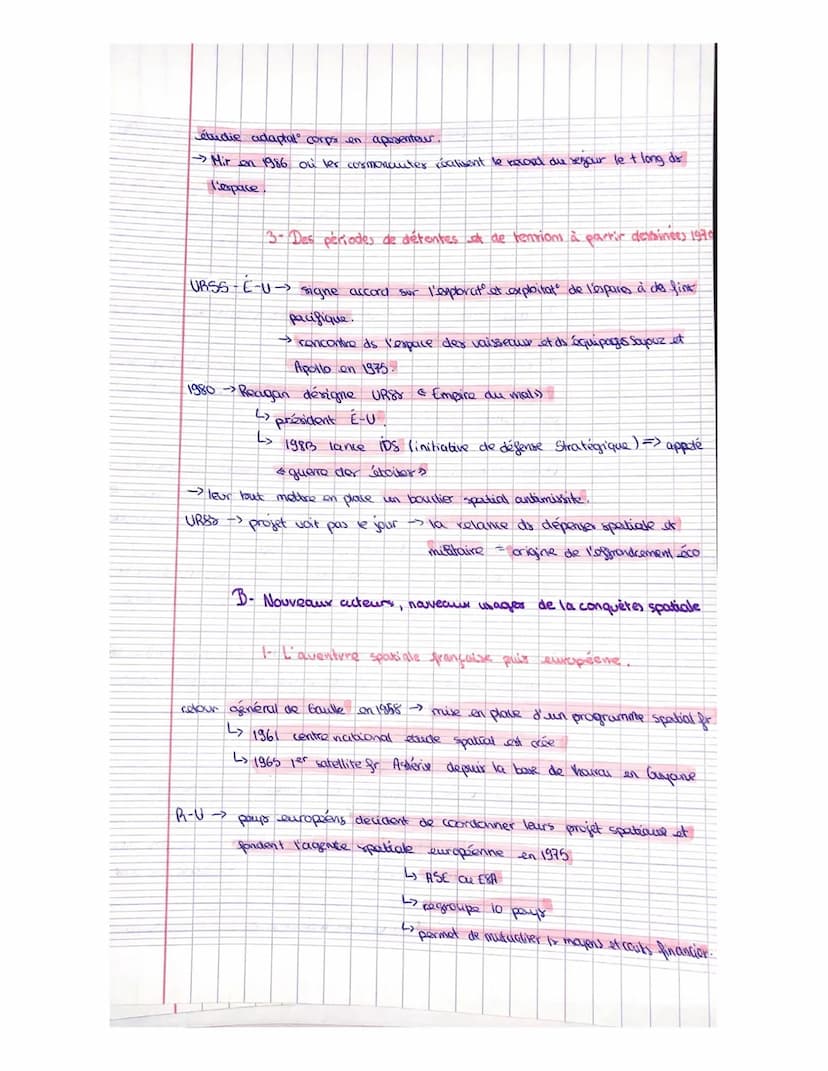 étudie adaptat° corps en apesenteur.
→ Mir en 1986 où les cosmonautes réalisent le record du sejour le + long ds
l'espace.
3- Des périodes de détentes et de tensions à partir des années 1970
URSS - É-U → signe accord sur l'explorat° et exploitat° de l'espace à des fins
pacifique.
→ rencontre ds l'espace des vaisseaux et ds équipages Soyouz et
Apollo en 1975.
1980 → Reagan désigne URSS « Empire du mal »
↳ président É-U.
↳ 1983 lance IDS (initiative de défense Stratégique) => appelé
« guerre des étoiles »
→ leur tout mettre en place un bouclier spatial antimissile.
URSS → projet voit pas le jour → la relance ds dépenses spatiale et
militaire = origine de l'effrondrement éco
B- Nouveaux acteurs, nouveaux usages de la conquêtes spatiale
1- L'aventure spatiale française puis européene.
retour général de Gaulle en 1958 → mise en place d'un programme spatial fr
↳ 1961 centre national étude spatial est crée
↳ 1965 1er satellite fr Astérix depuis la base de en Guyane
R-U → pays européens décident de coordonner leurs projet spatiaux et
fondent l'agence spatiale européenne en 1975
↳ ASE ou ESA
↳ regroupe 10 pays
↳ permet de mutualier ls moyens et couts financier.